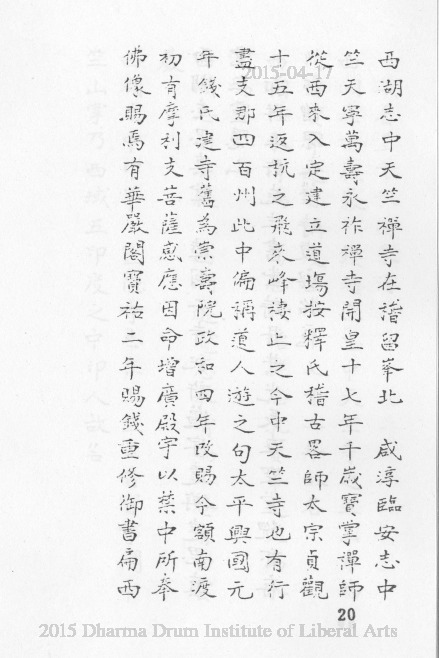 西湖志中天竺禪寺在稽留峯北　咸淳臨安志中
竺天寧萬壽永祚禪寺開皇十七年千歲寶掌禪師
從西來入定建立道塲按釋氏稽古畧師太宗貞觀
十五年返杭之飛來峰棲止之今中天竺寺也有行
盡支那四百州此中偏稱道人遊之句太平興國元
年錢氏建寺舊為崇壽院政和四年改賜今額南渡
初有摩利支菩薩感應因命增廣殿宇以禁中所奉
佛像賜焉有華嚴閣寶祐二年賜錢重修御書扁西
2015-04-17
20
2015 Dharma Drum Institute of Liberal Arts